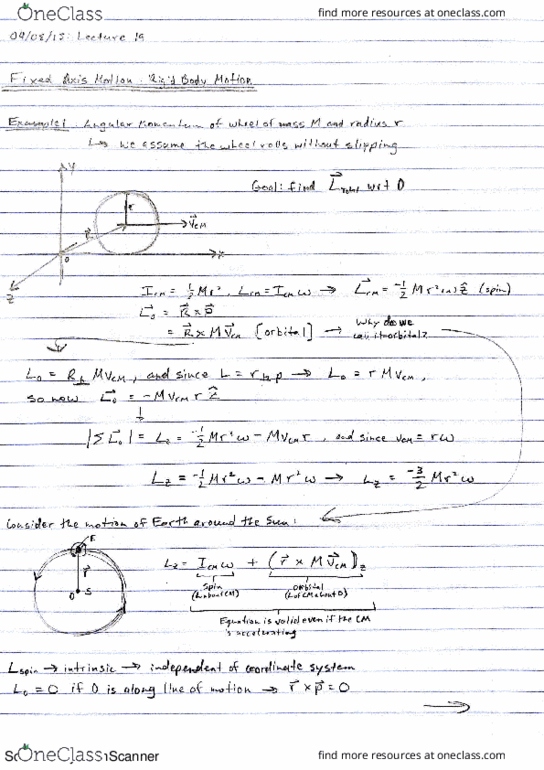 OneClass find more resources at oneclass.com
04/08/15: Lecture 19
Fixed Axis Motion: Rigid Body Motion
Example: Angular Momentum of wheel of mass M and radius r
↳ we assume the wheel rolls without slipping
Goal: find L⃗total wrt O
y
r
R⃗
v⃗CM
O
x
z
ICM = ½Mr², LCM = ICM ω → L⃗CM = -½ Mr²ω ẑ (spin)
L⃗o = R⃗ × p⃗
= R⃗ × M v⃗CM [orbital] → Why do we call it orbital?
Lo = R⊥ MVCM, and since L = r⊥ p → Lo = r MVCM,
so now L⃗o = -MVCM r ẑ
↓
|ΣL⃗o| = Lo = -½Mr²ω - MVCM r, and since vCM = rω
Lz = -½Mr²ω - Mr²ω → Lz = -3/2 Mr²ω
Consider the motion of Earth around the Sun:
E
r⃗
O S
Lz = ICM ω + (r⃗ × M V⃗CM)z
spin (L about CM) orbital (L of CM about O)
Equation is valid even if the CM
is accelerating
Lspin → intrinsic → independent of coordinate system
Lo = 0 if O is along line of motion → r⃗ × p⃗ = 0
OneClass Scanner find more resources at oneclass.com